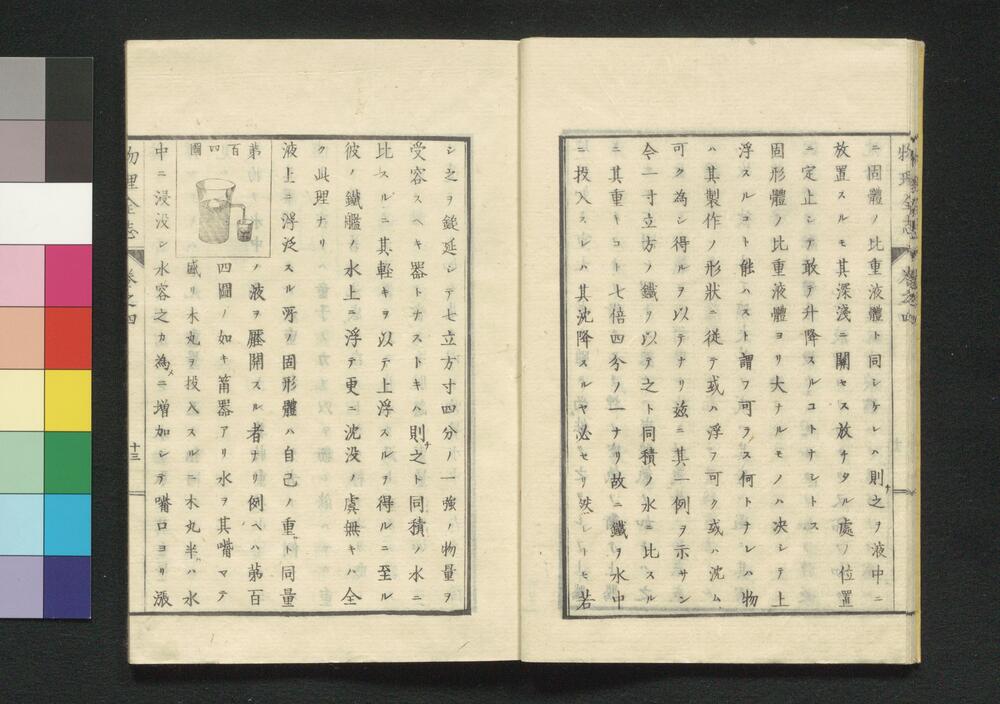 物理全志 卷之四
ニ固體ノ比重液體ト同シケレハ則チ之ヲ液中ニ
放置スルモ其深淺ニ關セス放チタル處ノ位置
ニ定止シテ敢テ升降スルコトナシトス
固形體ノ比重液體ヨリ大ナルモノハ決シテ上
浮スルコト能ハスト謂フ可ラス何トナレハ物
ハ其製作ノ形狀ニ從テ或ハ浮フ可ク或ハ沈ム
可ク為シ得ルヲ以テナリ茲ニ其一例ヲ示サン
今一寸立方ノ鐵ヲ以テ之ト同積ノ水ニ比スル
ニ其重キコト七倍四分ノ一ナリ故ニ鐵ヲ水中
ニ投入スレハ其沈降スルヤ必セリ然レトモ若
シ之ヲ鎚延シテ七立方寸四分ノ一強ノ物量ヲ
受容スヘキ器トナストキハ則チ之ト同積ノ水ニ
比スルニ其軽キヲ以テ上浮スルヲ得ルニ至ル
彼ノ鐵艦ノ水上ニ浮テ更ニ沈没ノ虞無キハ全
ク此理ナリ
液上ニ浮泛スル所ノ固形體ハ自己ノ重サト同量
第百四圖
ノ液ヲ壓開スル者ナリ例ヘハ第百
四圖ノ如キ筩器アリ水ヲ其嘴マテ
盛リ木丸ヲ投入スルニ木丸半ハ水
中ニ浸没シ水容之カ為メニ増加シテ嘴口ヨリ漲
物理全志 卷之四 十三